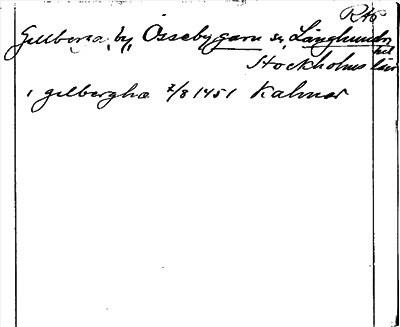 Rto
Gillberga, by, Össebygarn sn, Långhundra
hd
Stockholms län
i gilbergha 7/8 1451 Kalmar